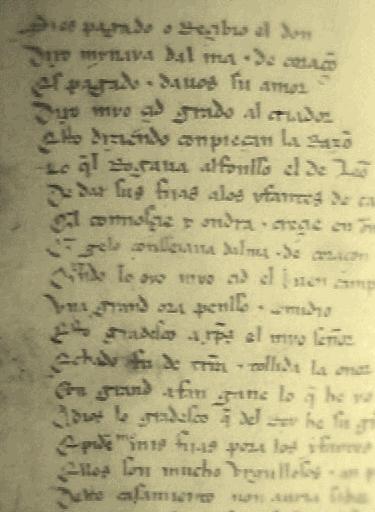 pagado o Reçibio el don
Dixo mynaya dalma ⁊ de coraçõ
Es pagado ⁊ dauos su amor
Dixo myo çid grado al criador
Esto diziendo conpieçan la Razõ
Lo q̃l Rogaua alfonsso el de Leõ
De dar sus fijas alos yfantes de ca
Q̃l connosçie y ondra ⁊ creçie en
Q̃ gelo conseiaua dalma ⁊ de coraçon
Quãdo lo oyo myo çid el buen camp
Vna grand ora penssо ⁊ comidio
Esto gradesco a xp̃s el myo señor
Echado fu de trr̃a ⁊ tollida la onor
Con grand afan gane lo q̃ he yo
Adios lo gradesco q̃ del Rey he su g̃
E piden mis fijas pora los yfantes
Ellos son mucho vrgullosos ⁊ an p
Deste casamiento non auria sabor